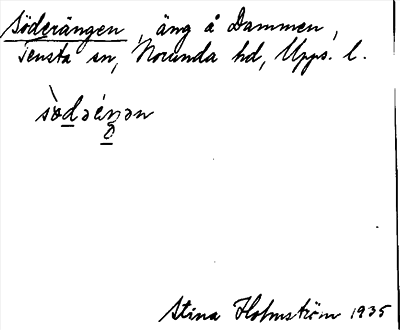 Söderängen, äng å Dammen,
Tensta sn, Norunda hd, Upps. l.
Stina Holmström 1935